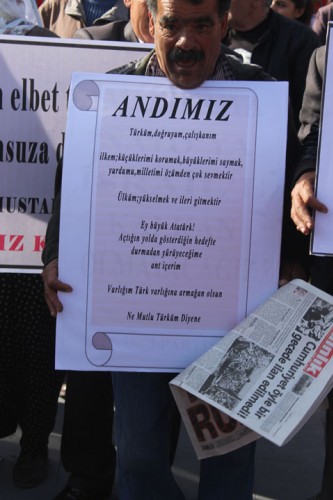 n elbet
nsuza d
MUSTA
MIZ K
ANDIMIZ
Türküm,doğruyum,çalışkanım
ilkem;küçüklerimi korumak,büyüklerimi saymak,
yurdumu,milletimi özümden çok sevmektir
Ülküm;yükselmek ve ileri gitmektir
Ey büyük Atatürk!
Açtığın yolda gösterdiğin hedefte
durmadan yürüyeceğime
ant içerim
Varlığım Türk varlığına armağan olsun
Ne Mutlu Türküm Diyene
Cumhuriyet öyle bir
gecede ilan edilmedi!